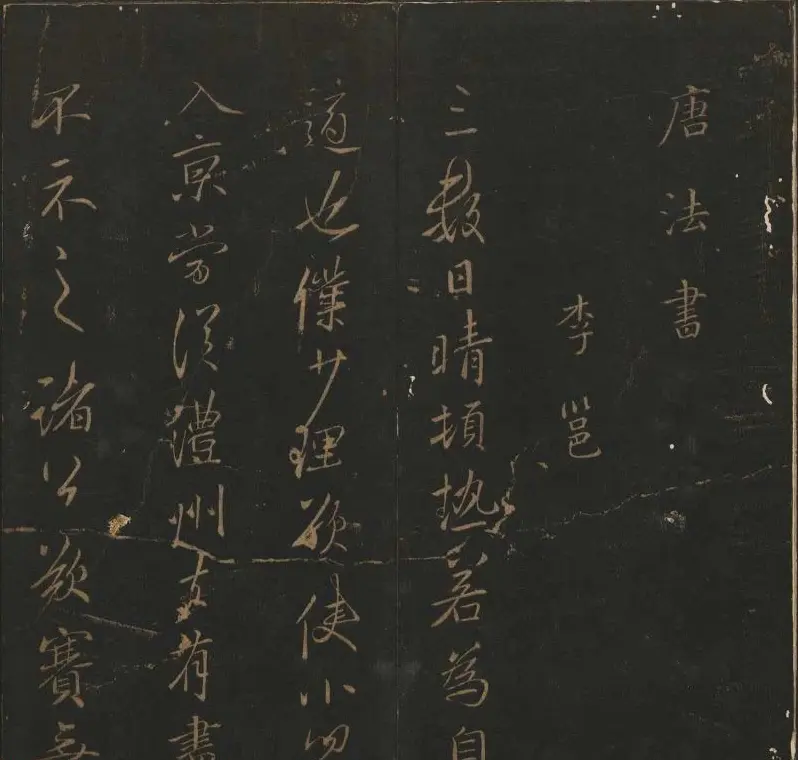 唐法書
李邕
三數日晴頓热若為自
適也僕少理欲使小
入京嘗從澧州去有書
不示之諸公歎賽